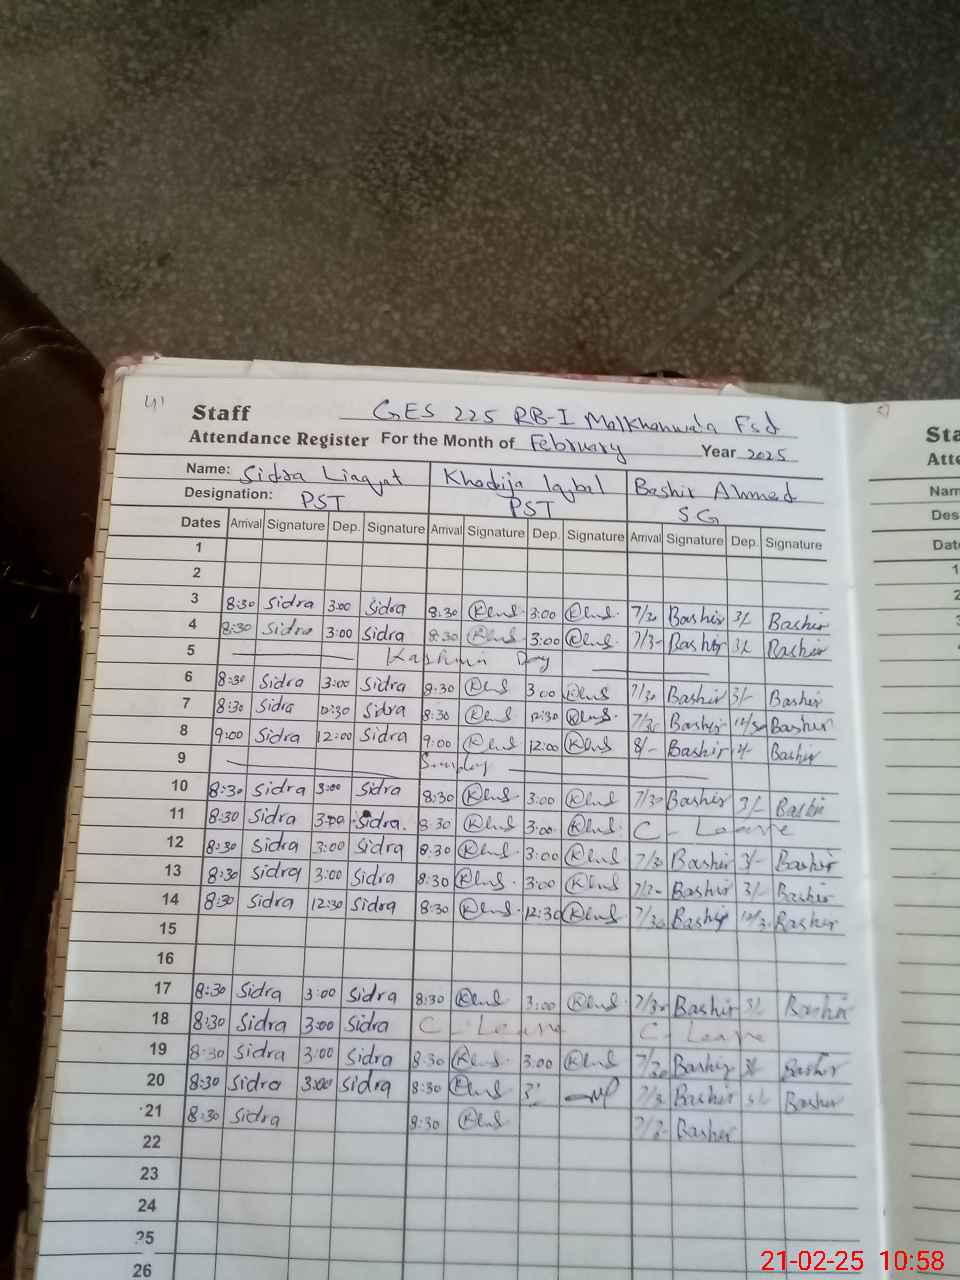 41
Staff GES 225 RB-I Malkhanwala Fsd
Attendance Register For the Month of February Year 2025
Name: Sidra Liaqat Khadija Iqbal Bashir Ahmed
Designation: PST PST SG
Dates Arrival Signature Dep. Signature Arrival Signature Dep. Signature Arrival Signature Dep. Signature
1
2
3 8:30 Sidra 3:00 Sidra 8:30 3:00 7/30 Bashir 3/- Bashir
4 8:30 Sidra 3:00 Sidra 8:30 3:00 7/3- Bashir 3/- Bashir
5 Kashmir Day
6 8:30 Sidra 3:00 Sidra 8:30 3:00 7/30 Bashir 3/- Bashir
7 8:30 Sidra 12:30 Sidra 8:30 12:30 7/30 Bashir 12/30 Bashir
8 9:00 Sidra 12:00 Sidra 9:00 12:00 8/- Bashir Bashir
9 Sunday
10 8:30 Sidra 3:00 Sidra 8:30 3:00 7/30 Bashir 3/- Bashir
11 8:30 Sidra 3:00 Sidra 8:30 3:00 C - Leave
12 8:30 Sidra 3:00 Sidra 8:30 3:00 7/30 Bashir 3/- Bashir
13 8:30 Sidra 3:00 Sidra 8:30 3:00 7/3- Bashir 3/- Bashir
14 8:30 Sidra 12:30 Sidra 8:30 12:30 7/30 Bashir 12/3- Bashir
15
16
17 8:30 Sidra 3:00 Sidra 8:30 3:00 7/30 Bashir 3/- Bashir
18 8:30 Sidra 3:00 Sidra C - Leave C - Leave
19 8:30 Sidra 3:00 Sidra 8:30 3:00 7/30 Bashir 3/- Bashir
20 8:30 Sidra 3:00 Sidra 8:30 7/3- Bashir 3/- Bashir
21 8:30 Sidra 8:30 7/3- Bashir
22
23
24
25
26
Sta
Atte
Nam
Des
Dat
21-02-25 10:58